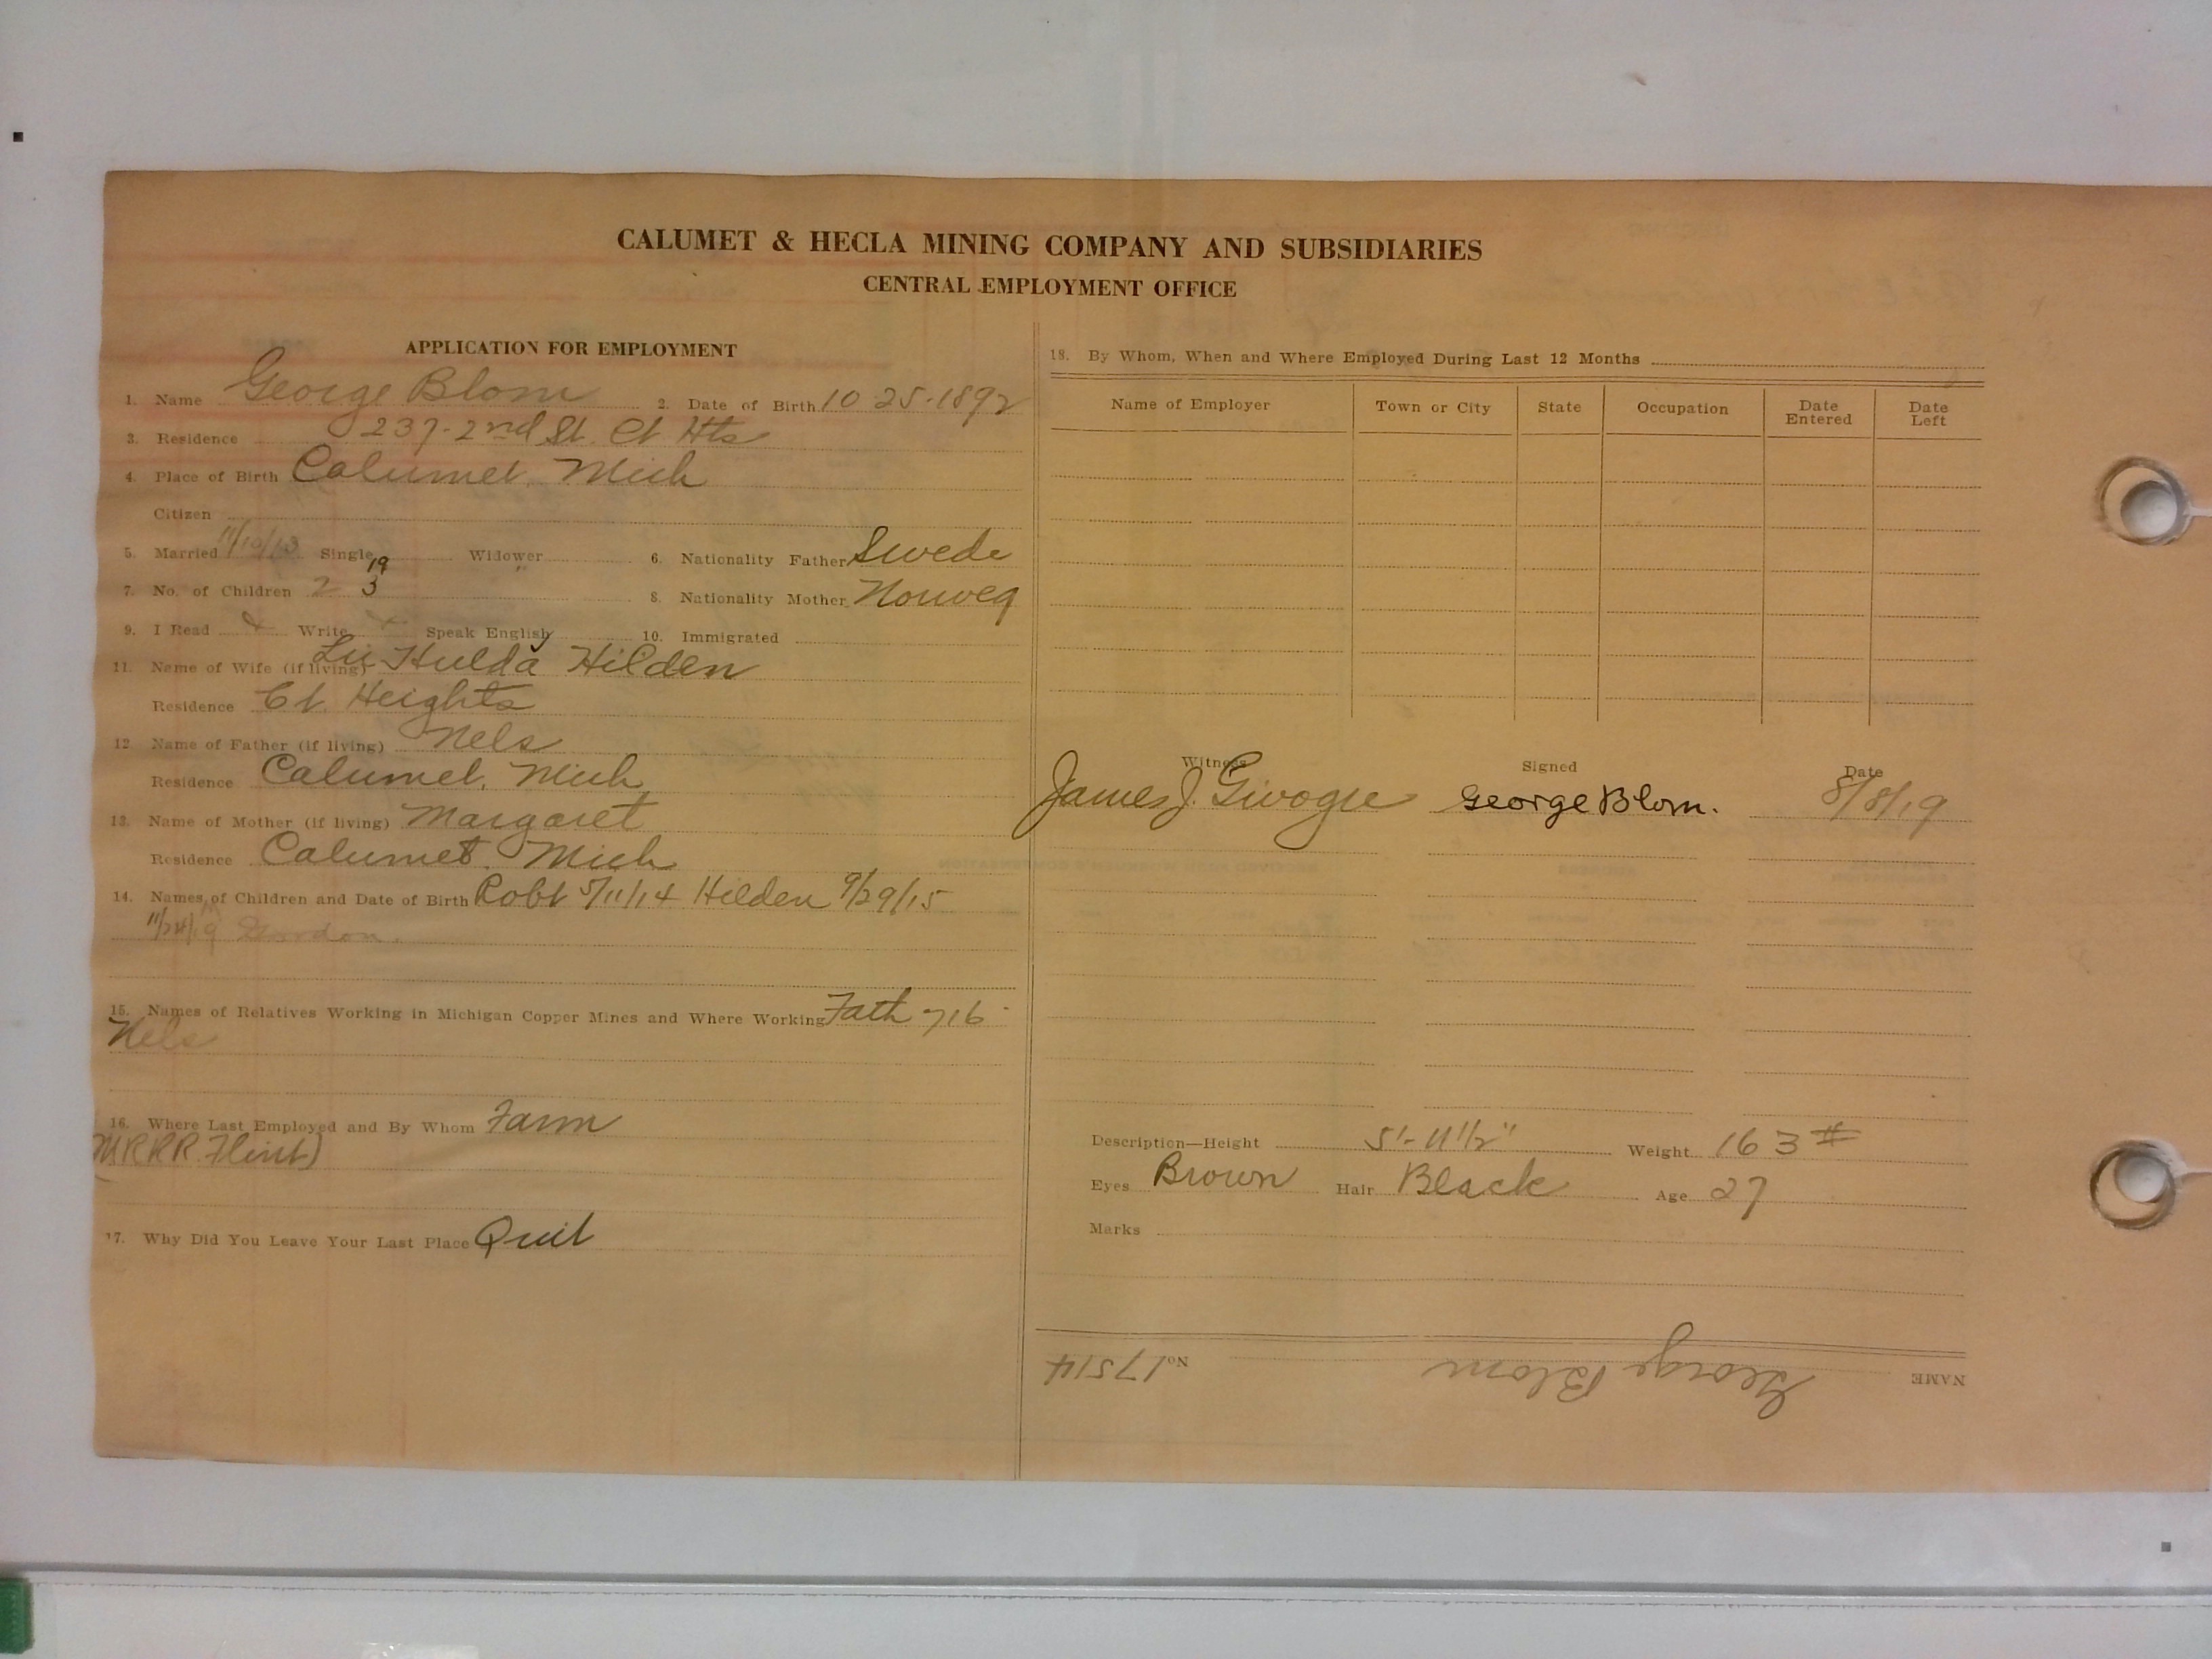 CALUMET & HECLA MINING COMPANY AND SUBSIDIARIES
CENTRAL EMPLOYMENT OFFICE
APPLICATION FOR EMPLOYMENT
1. Name George Blom 2. Date of Birth 10-25-1892
3. Residence 237-2nd St. Ct Hts
4. Place of Birth Calumet, Mich
Citizen
5. Married 11/10/13 Single Widower 6. Nationality Father Swede
19
7. No. of Children 2 3 8. Nationality Mother Norweg
9. I Read x Write x Speak English 10. Immigrated
11. Name of Wife (if living) Hulda Hilden
Residence Ct. Heights
12. Name of Father (if living) Nels
Residence Calumet, Mich
13. Name of Mother (if living) Margaret
Residence Calumet, Mich
14. Names of Children and Date of Birth Robt 5/11/14 Hilden 9/29/15
11/24/19 Gordon.
15. Names of Relatives Working in Michigan Copper Mines and Where Working Fath 716
Nels
16. Where Last Employed and By Whom Farm
M R R R. Flint)
17. Why Did You Leave Your Last Place Quit
18. By Whom, When and Where Employed During Last 12 Months
Name of Employer Town or City State Occupation Date Entered Date Left
Witness Signed Date
James J. George Blom. 8/8/19
Description—Height 5'-11 1/2" Weight 163 #
Eyes Brown Hair Black Age 27
Marks
NAME George Blom No. 17514